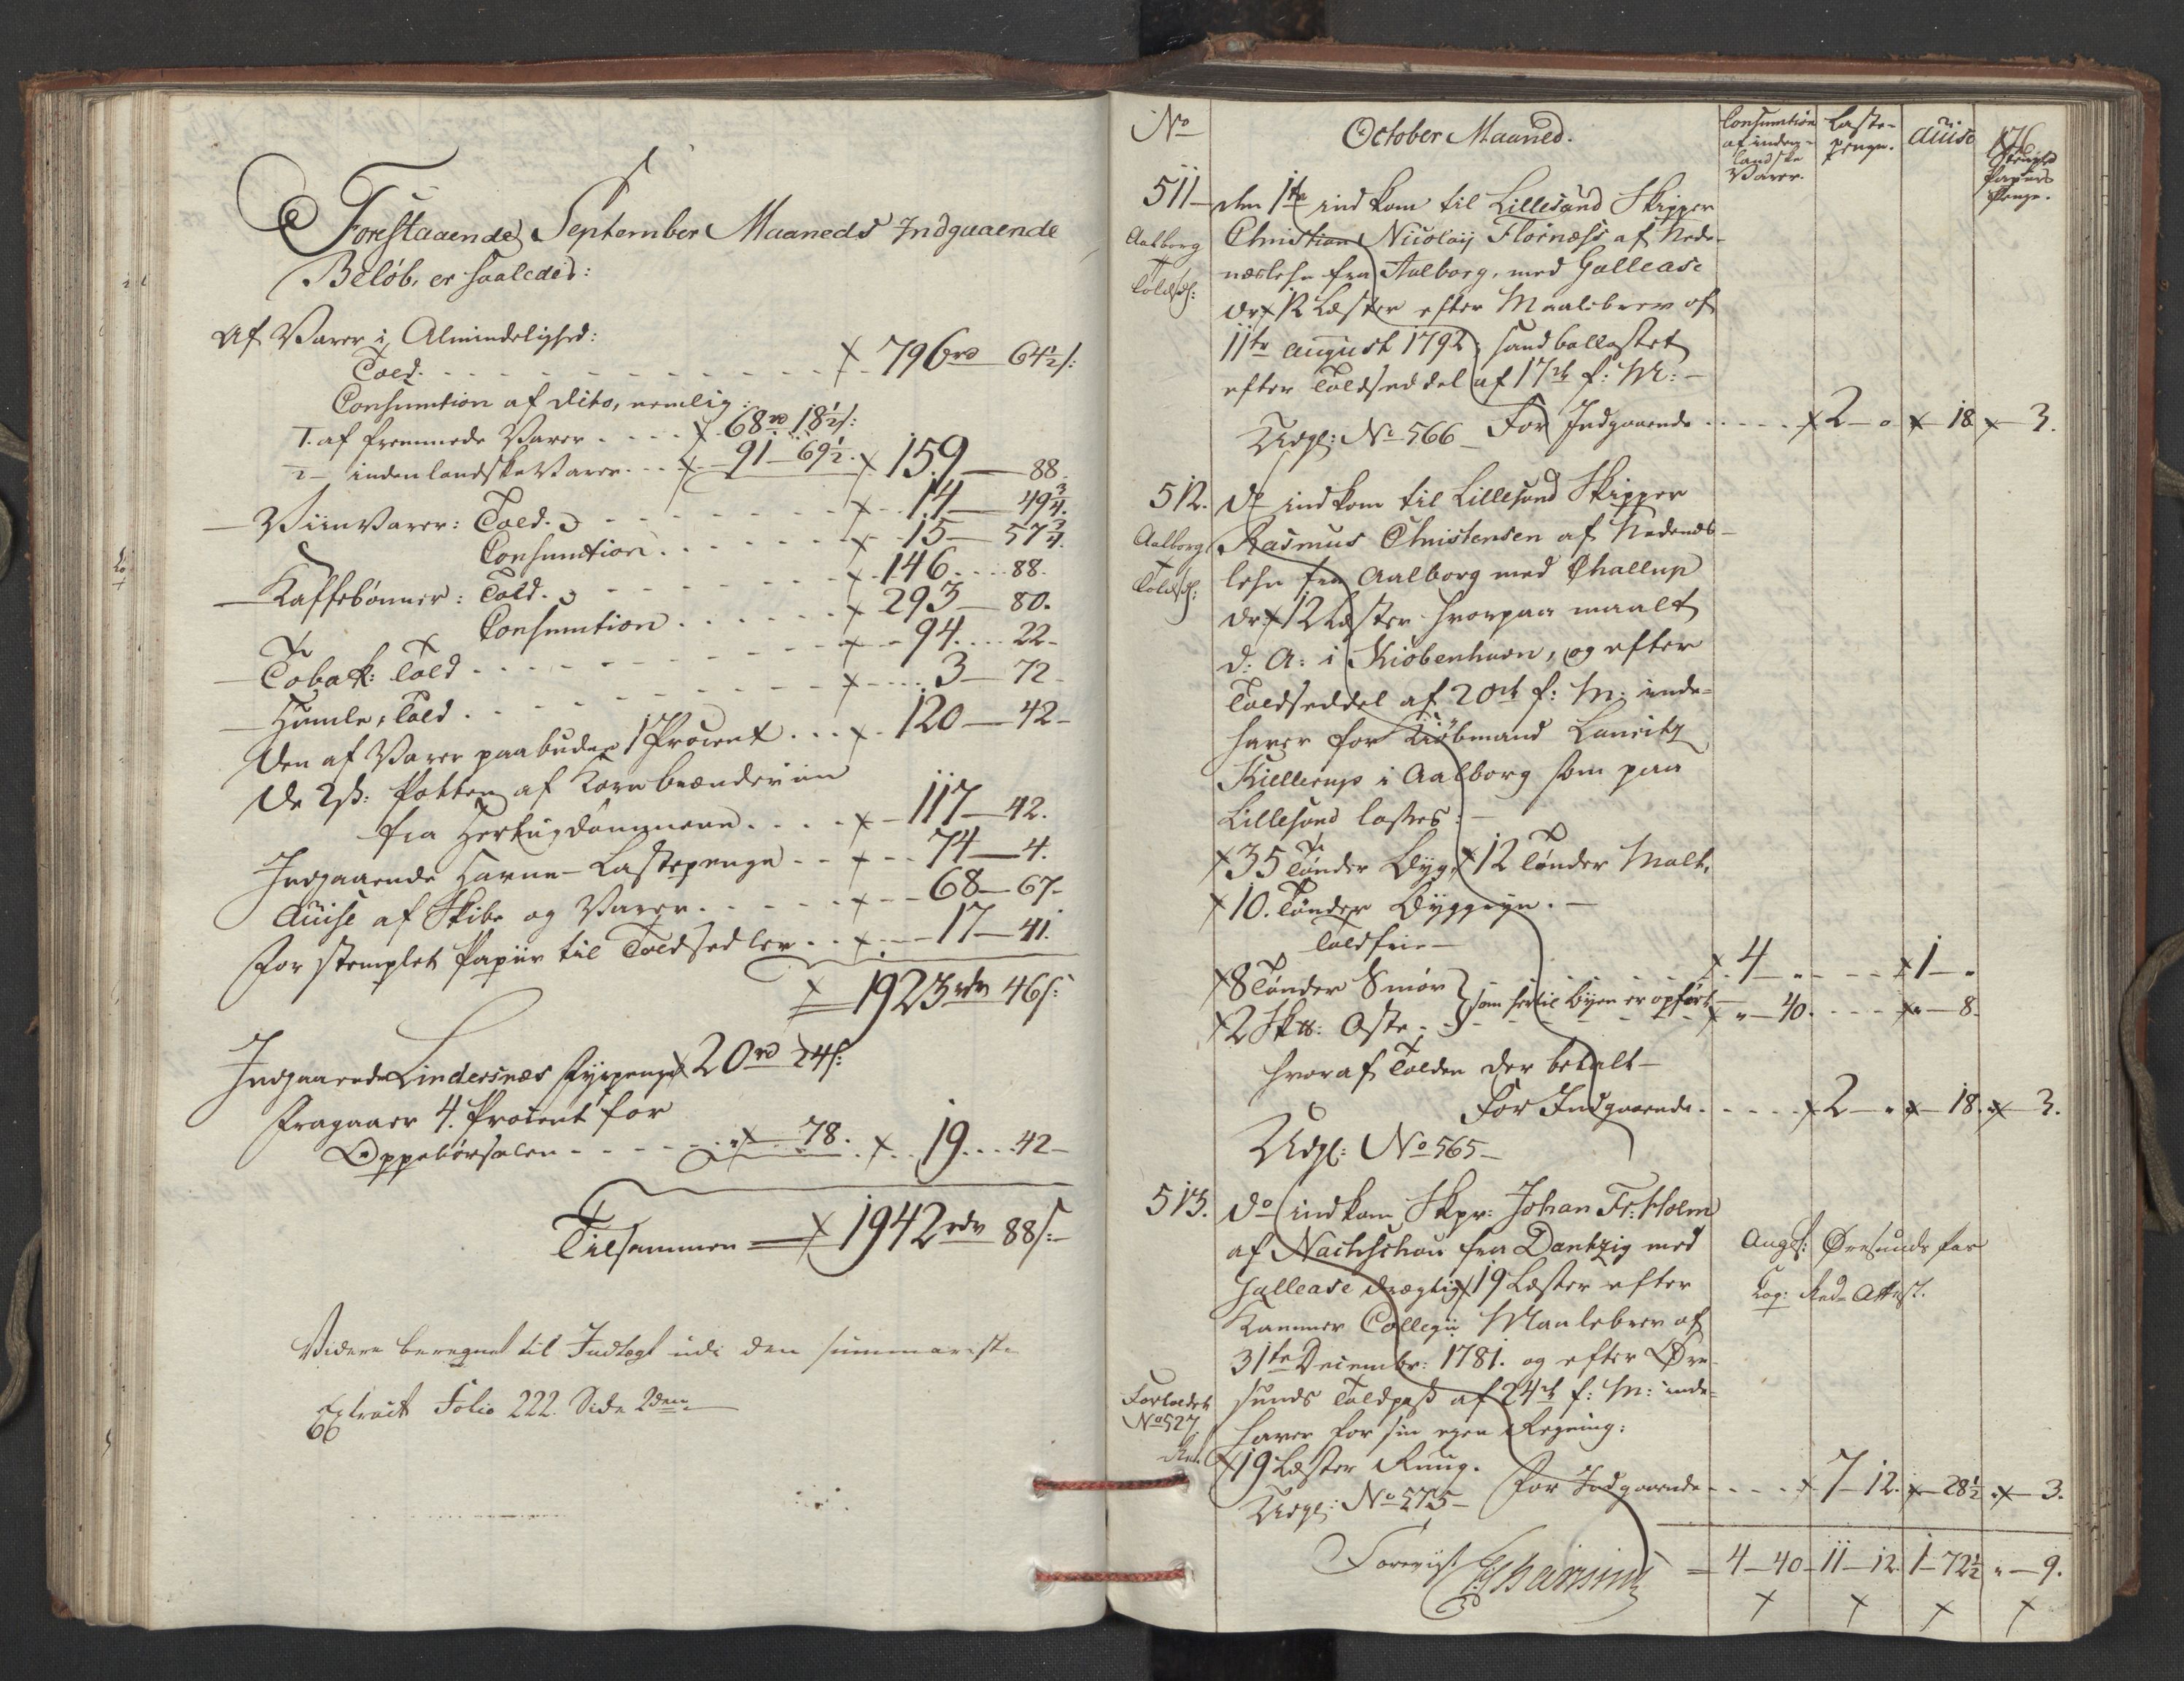 Forestaaende September Maaneds Indgaaende
Beløb, er saaledes:
Af Varer i Almindelighed:
Told. x 796 rd 64½ s:
Consumtion af dito, nemlig:
1. af fremmede Varer x 68 rd 18½ s:
2 — indenlandske Varer x 91 — 69½. x 159 — 88.
— Viin Varer: Told. x 14 — 49¾.
Consumtion. x 15 — 57¾.
— Kaffebønner: Told. x 146 88.
Consumtion x 293 — 80.
— Tobak: Told x 94 22 -
— Humle, Told x 3 — 72 -
Den af Varer paabudne 1 Procent x 120 — 42 -
De 2 ß: Potten af Korn brændeviin
fra Hertugdømmene x 117 — 42.
Indgaaende Havne - Lastepenge x 74 — 4.
Auise af Skibe og Varer x 68 — 67 -
For stemplet Papiir til Toldsedler x 17 — 41.
x 1923 rdr 46 s:
Indgaaende Lindersnæs Fyrpenge x 20 rd 24 s:
Fragaaer 4. Procent for
Oppebørselen x 78. x 19 42 -
Tilsammen x 1942 rdr 88 s:
Videre beregnet til Indtægt udi den summariske
Extract Folio 222. Side 2den
No
October Maaned.
Consumtion af inden- landske Varer.
Laste- penge.
Auise
176
Stemplet Papiirs Penge.
511 — den 1te indkom til Lillesand Skipper
Aalborg Toldsd:
Christian Nicolaij Flørnæss af Nede-
næs lehn fra Aalborg, med Galleace
dr. x 12 Læster efter Maalebrev af
11te august 1792, sandballastet
efter Toldseddel af 17de f: M: —
Udgl: No 566 — For Indgaaende x 2 — " x 18 x 3.
512. do indkom til Lillesand Skipper
Aalborg Toldsd:
Rasmus Christensen af Nedenæs-
lehn fra Aalborg med Challup
dr. x 12 Læster hvorpaa maalt
d: A: i Kiøbenhavn, og efter
Toldseddel af 20de f: M: inde-
haver for Kiøbmand Lauritz
Kiellerup i Aalborg som paa
Lillesand losses: —
x 35 Tønder Byg, x 12 Tønder Malt,
x 10. Tønder Byggryn. —
Toldfrie —
x 8 Tønder Smør x 4 — " x 1 — "
som hertil Byen er opført
x 2 Sk℔: Oste x " — 40. x " — 8.
hvoraf Tolden der betalt —
For Indgaaende x 2 — " x 18. x 3.
Udgl: No 565 —
513. do indkom Skpr: Johan Fr: Holm
af Nachschou fra Dantzig med
Galleace drægtig x 19 Læster efter
Kammer Collegii Maalebrev af
31te Decembr: 1781. og efter Øre-
sunds Toldpass af 24de f: M: inde-
haver for sin egen Regning:
x 19 Læster Ruug.
Fortoldet No 527
Angl: Øresunds pas
Udgl: No 575 — For Indgaaende x 7 — 12. x 28½ x 3.
Foreviist
= 4 — 40 — 11 — 12. 1 — 72½ " — 9.
x x x x